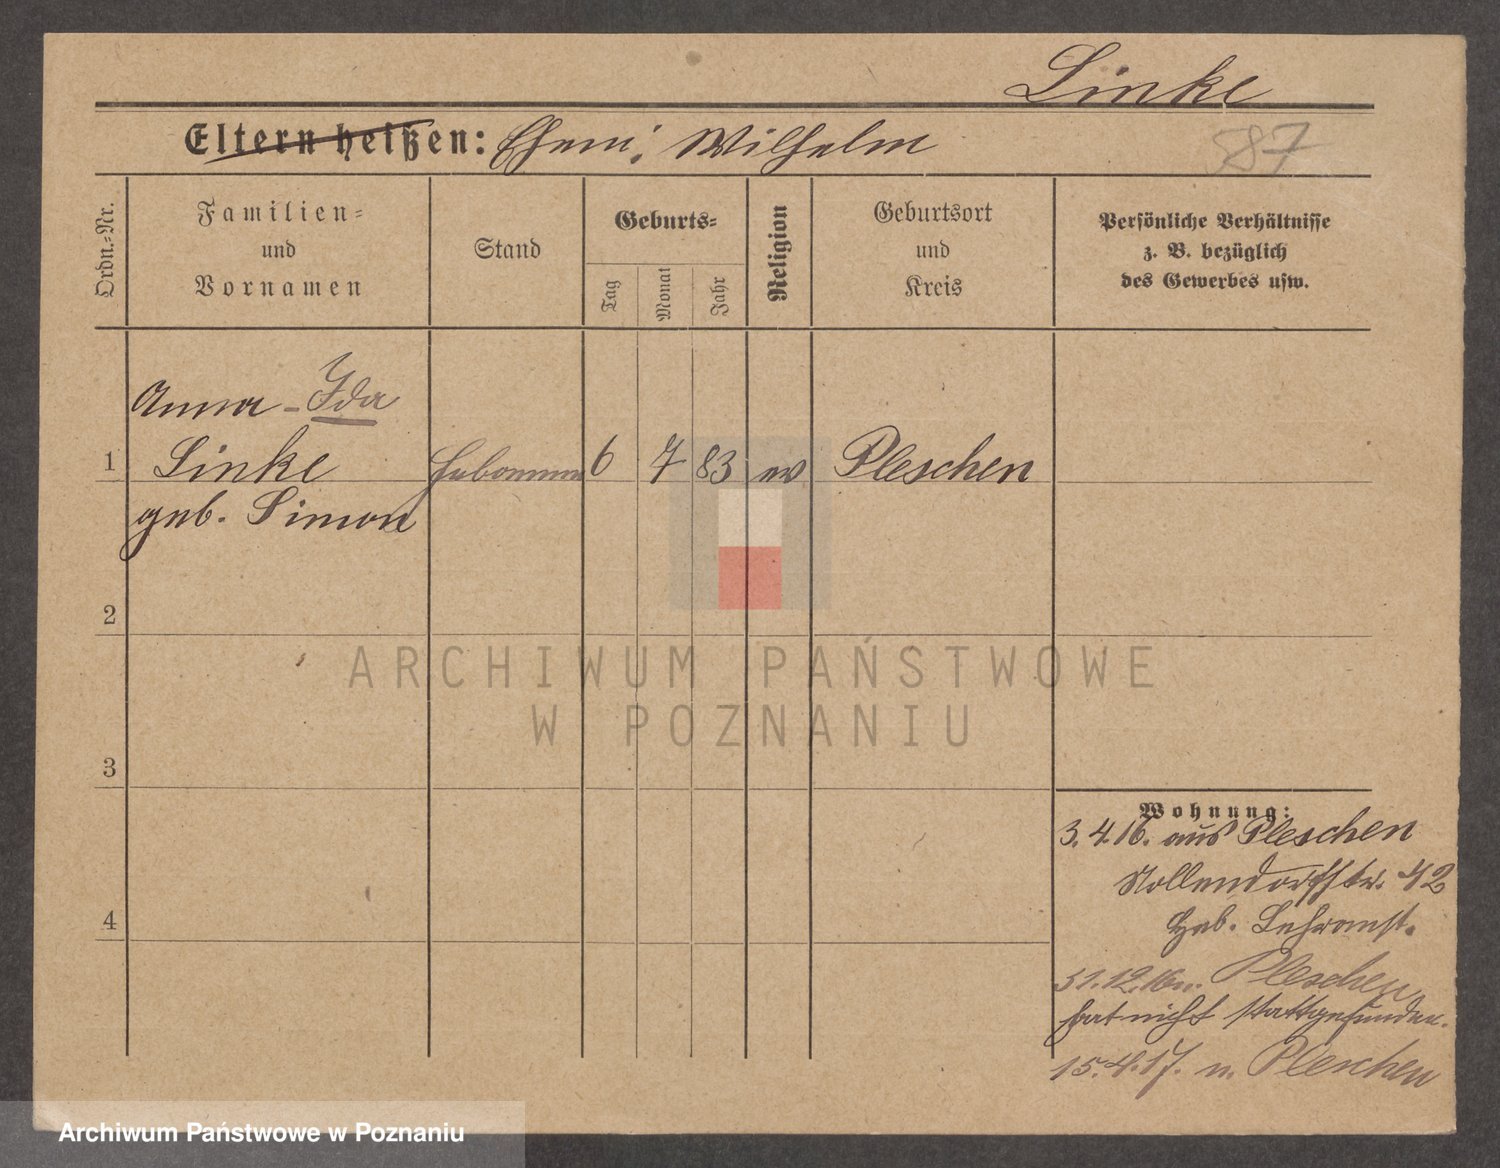 Linke
Eltern heißen: Ehem: Wilhelm
587
Ordn.-Nr.
Familien-
und
Vornamen
Stand
Geburts-
Tag
Monat
Jahr
Religion
Geburtsort
und
Kreis
Persönliche Verhältnisse
z. B. bezüglich
des Gewerbes usw.
Anna - Ida
1 Linke Hebamme 6 7 83 ev Pleschen
geb. Simon
2
3
4
Wohnung:
3.4.16. aus Pleschen
Nollendorfstr. 42
Heb. Lehranst.
31.12.16 n. Pleschen
hat nicht stattgefunden.
15.4.17. n. Pleschen
ARCHIWUM PAŃSTWOWE
W POZNANIU
Archiwum Państwowe w Poznaniu